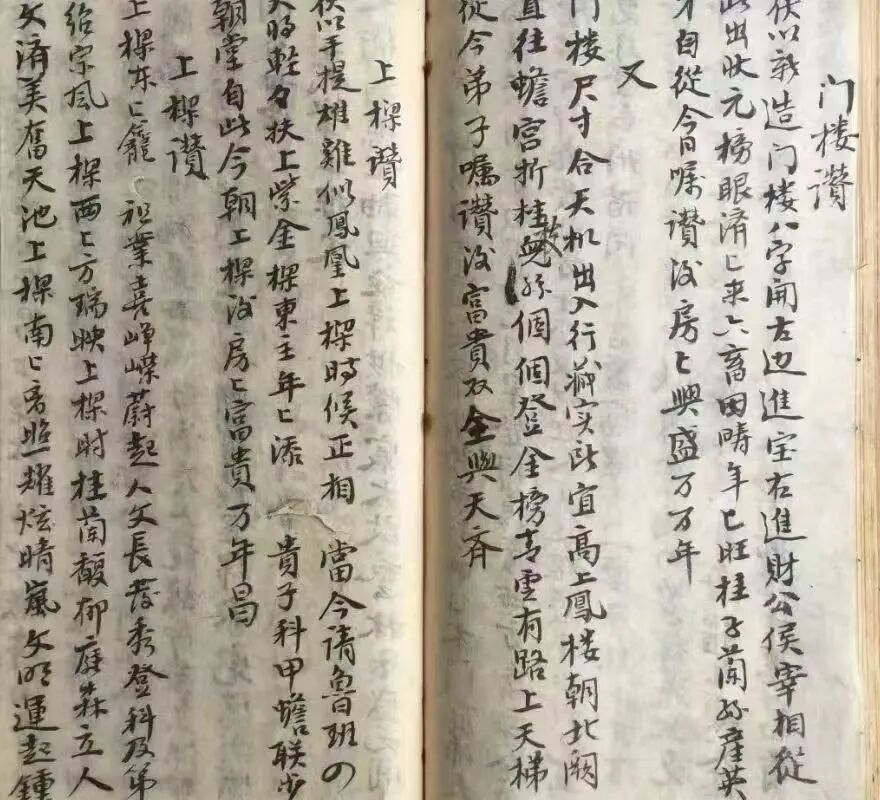 门楼讚
伏以新造门楼八字開左边進宝右進財公侯宰相從
此出状元榜眼済〻来六畜田畴年〻旺桂子蘭孙産英
才自從今日嘱讚後房〻興盛万万年
又
门楼尺寸合天机出入行藏实此宜高上鳳楼朝北阙
直往蟾宫折桂枝児孙個個登金榜青雲有路上天梯
從今弟子嘱讚後富貴双全與天斉
上樑讚
伏以手提雄雞似鳳凰上樑時候正相當今請魯班の
大時軽々扶上紫金樑東主年〻添貴子科甲蟾聨步
朝堂自此今朝上樑後房〻富貴万年昌
上樑讚
上樑东〻籠祖業喜峥嵘蔚起人文長发秀登科及第
绍宗风上樑西〻方瑞映上樑时桂蘭馥郁庭森立人
文済美奮天池上樑南〻方照耀炫晴嵐文明運起鍾